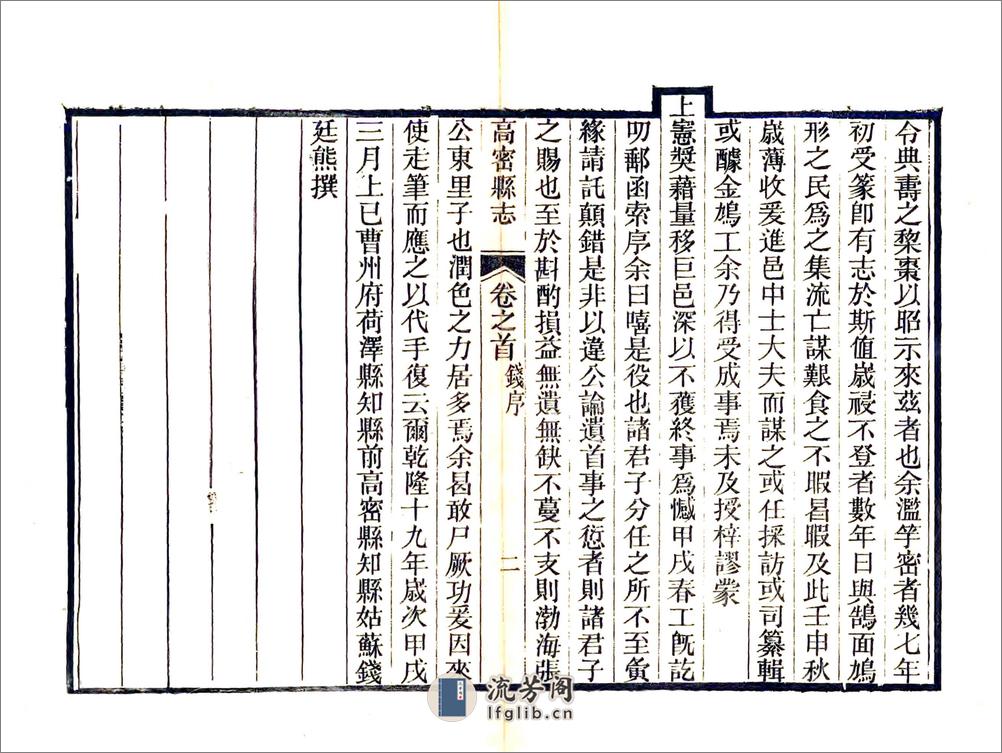 令典壽之棃棗以昭示來茲者也余濫竽密者幾七年
初受篆卽有志於斯值歲祲不登者數年日與鵠面鳩
形之民爲之集流亡謀艱食之不暇曷暇及此壬申秋
歲薄收爰進邑中士大夫而謀之或任採訪或司纂輯
或醵金鳩工余乃得受成事焉未及授梓謬蒙
上憲獎藉量移巨邑深以不獲終事爲憾甲戌春工旣訖
叨郵函索序余曰嘻是役也諸君子分任之所不至夤
緣請託顛錯是非以違公論遺首事之愆者則諸君子
之賜也至於斟酌損益無遺無缺不蔓不支則渤海張
高密縣志 卷之首 錢序 二
公東里子也潤色之力居多焉余曷敢尸厥功爰因來
使走筆而應之以代手復云爾乾隆十九年歲次甲戌
三月上巳曹州府荷澤縣知縣前高密縣知縣姑蘇錢
廷熊撰
流芳阁
lfglib.cn